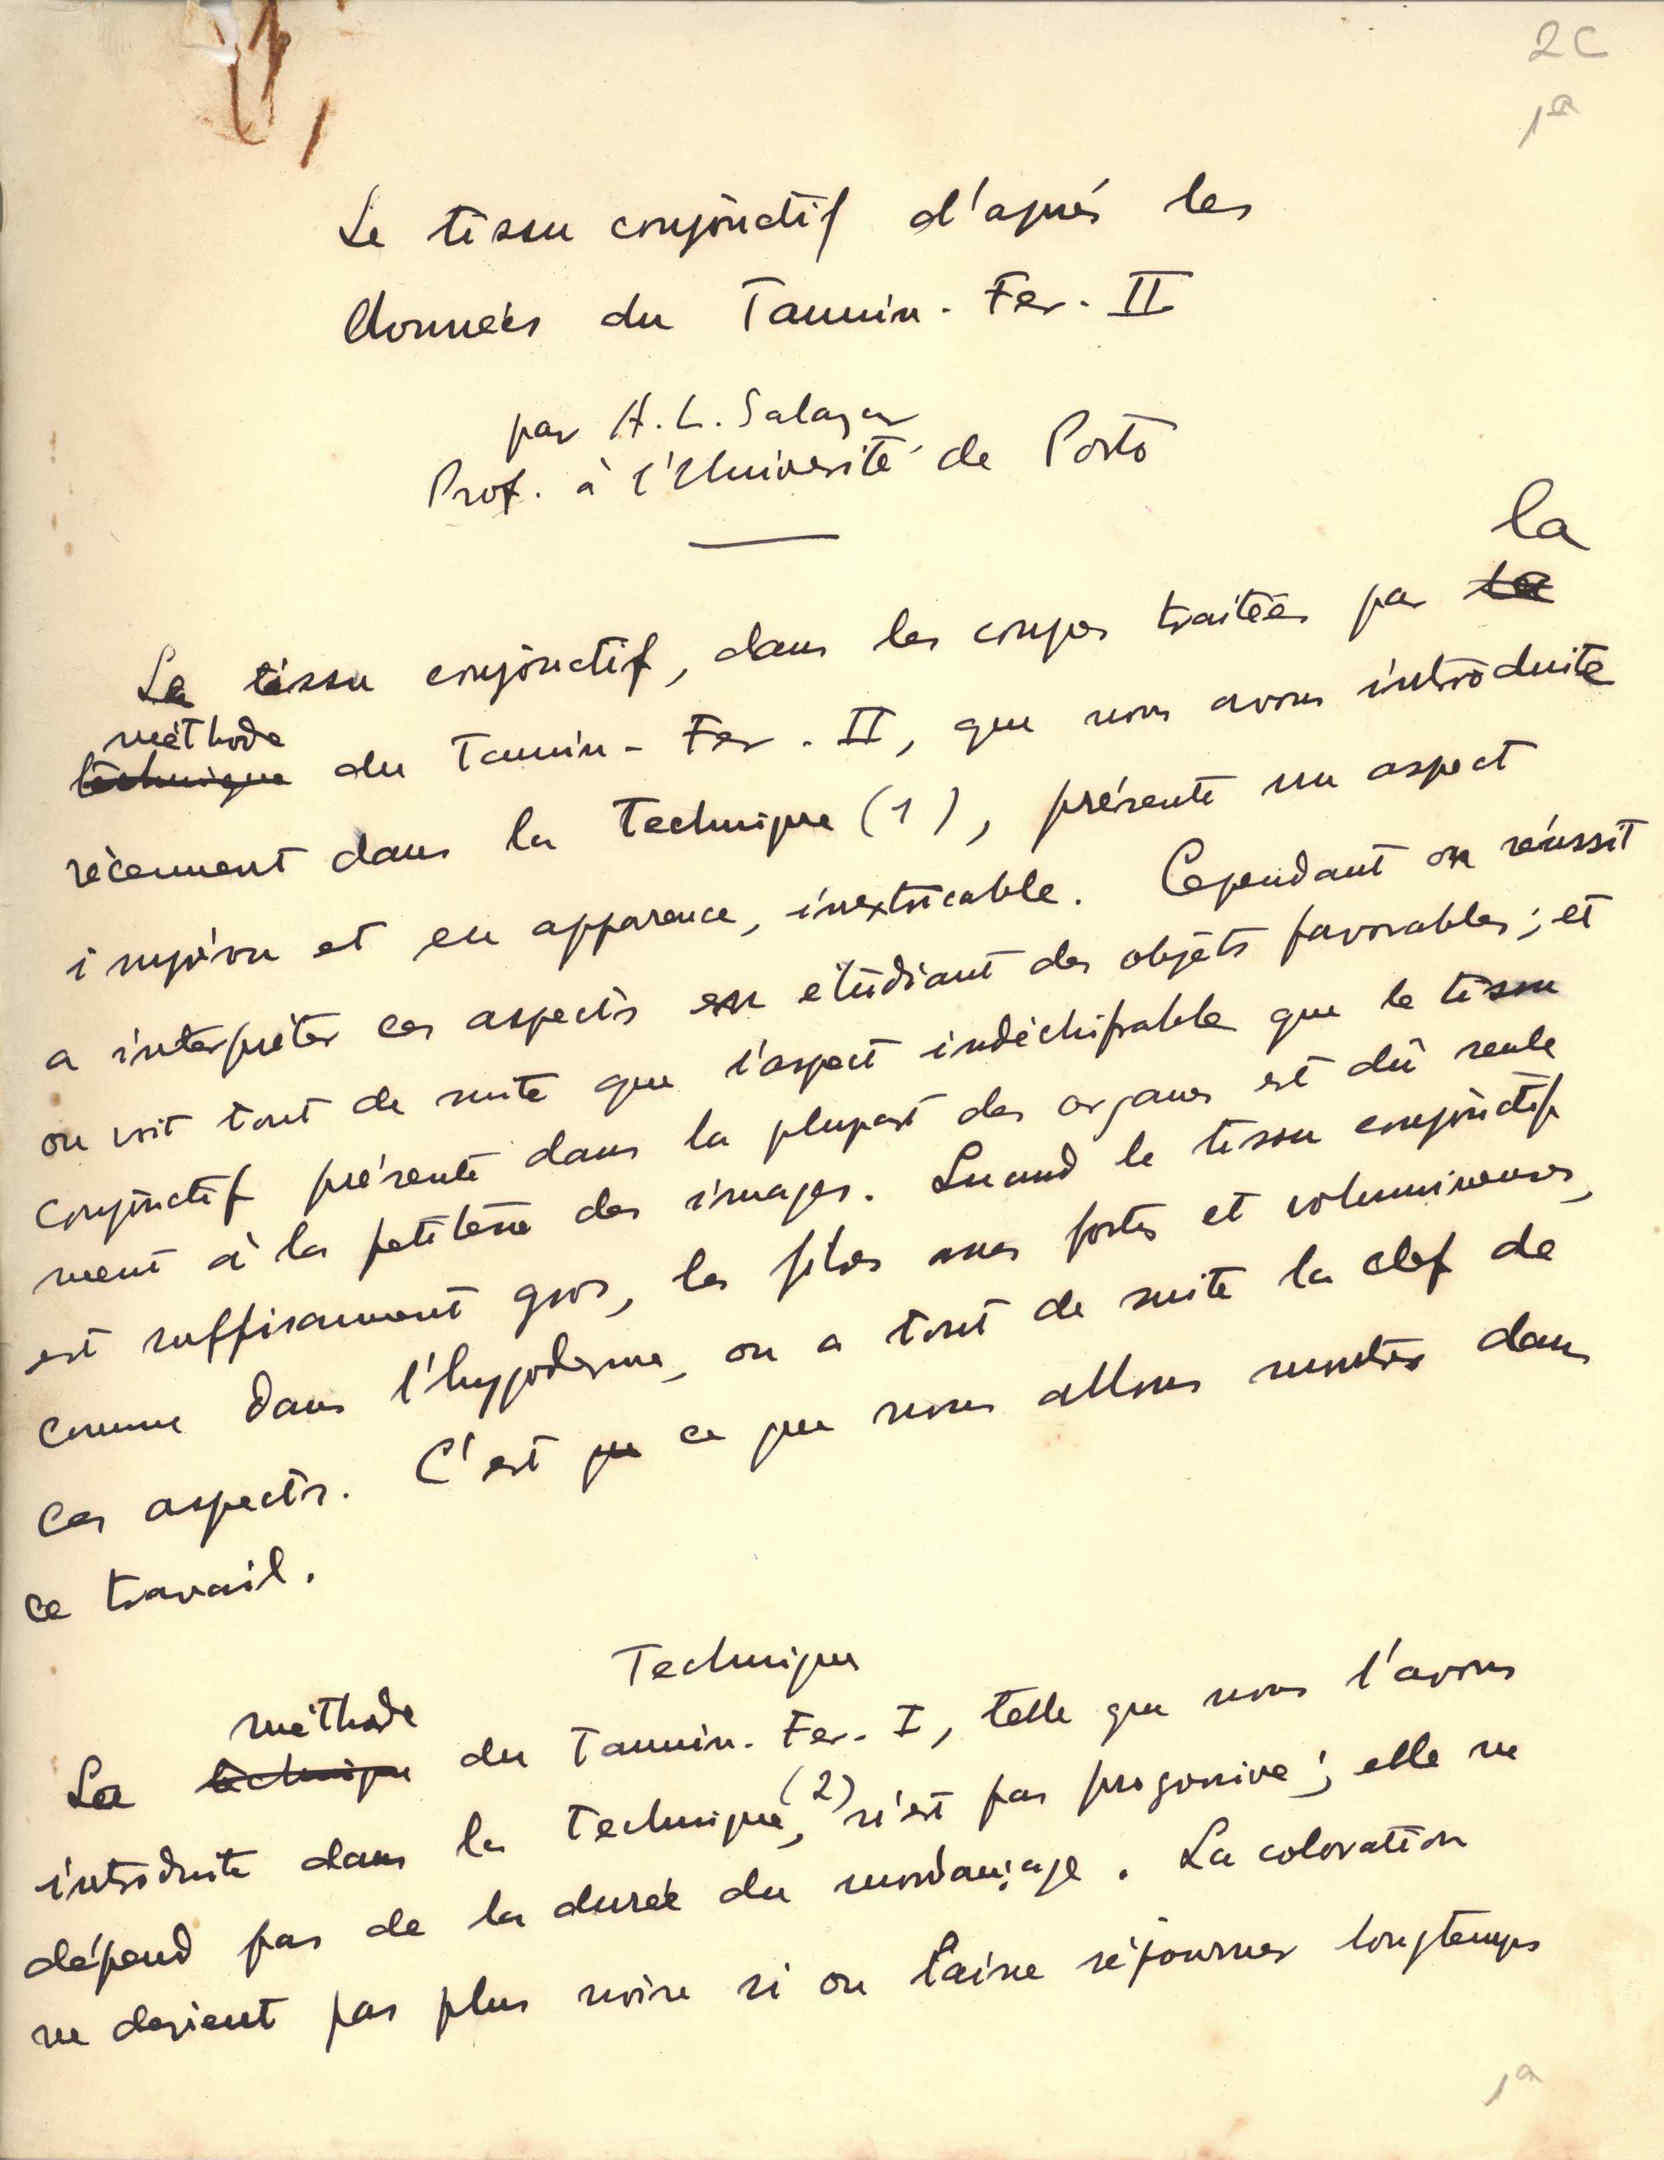 2C
1ª
Le tissu conjonctif d'après les
données du Tannin-Fer-II
par A. L. Salazar
Prof. à l'Université de Porto
la
Le tissu conjonctif, dans les coupes traitées par la
méthode
technique du Tannin-Fer-II, que nous avons introduite
récemment dans la Technique (1), présente un aspect
imprévu et en apparence, inextricable. Cependant on réussit
a interpréter ces aspects en étudiant des objets favorables; et
on voit tout de suite que l'aspect indéchifrable que le tissu
conjonctif présente dans la plupart des organes est dû seule
ment à la petitesse des images. Quand le tissu conjonctif
est suffisamment gros, les fibres assez fortes et volumineuses,
comme dans l'hypoderme, on a tout de suite la clef de
ces aspects. C'est que ce que nous allons montrer dans
ce travail.
Technique
méthode
La technique du Tannin-Fer-I, telle que nous l'avons
introduite dans la Technique, (2) n'est pas progressive; elle ne
dépend pas de la durée du mordançage. La coloration
ne devient pas plus noire si on laisse séjourner longtemps
1ª